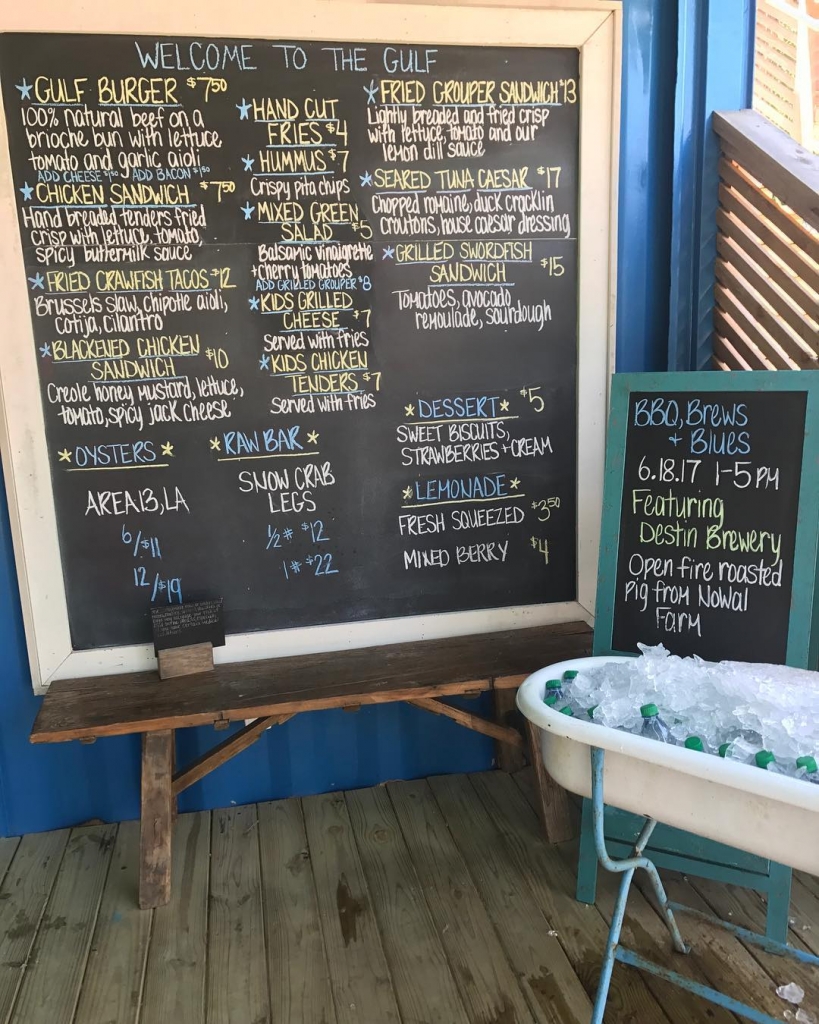 WELCOME TO THE GULF
GULF BURGER $7.50
100% natural beef on a
brioche bun with lettuce
tomato and garlic aioli
ADD CHEESE $1.50 ADD BACON $1.50
CHICKEN SANDWICH $7.50
Hand breaded tenders fried
crisp with lettuce, tomato,
spicy buttermilk sauce
FRIED CRAWFISH TACOS $12
Brussels slaw, chipotle aioli,
cotija, cilantro
BLACKENED CHICKEN
SANDWICH $10
Creole honey mustard, lettuce,
tomato, spicy jack cheese
HAND CUT
FRIES $4
HUMMUS $7
Crispy pita chips
MIXED GREEN
SALAD $5
Balsamic vinaigrette
+ cherry tomatoes
ADD GRILLED GROUPER $8
KIDS GRILLED
CHEESE $7
Served with fries
KIDS CHICKEN
TENDERS $7
Served with fries
FRIED GROUPER SANDWICH $13
Lightly breaded and fried crisp
with lettuce, tomato and our
lemon dill sauce
SEARED TUNA CAESAR $17
Chopped romaine, duck cracklin
croutons, house caesar dressing
GRILLED SWORDFISH
SANDWICH $15
Tomatoes, avocado
remoulade, sourdough
OYSTERS
AREA 13, LA
6/$11
12/$19
RAW BAR
SNOW CRAB
LEGS
1/2 # $12
1 # $22
DESSERT $5
SWEET BISCUITS,
STRAWBERRIES + CREAM
LEMONADE
FRESH SQUEEZED $3.50
MIXED BERRY $4
BBQ, Brews
+ Blues
6.18.17 1-5 PM
Featuring
Destin Brewery
Open fire roasted
pig from NoWal
Farm